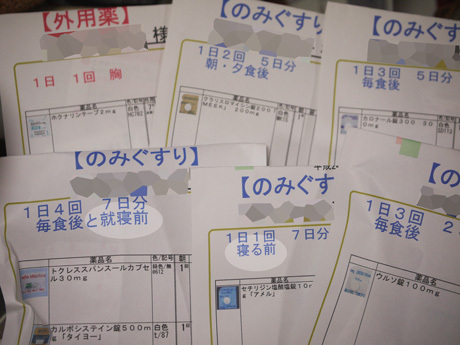 【外用薬】
様
1日 1回 胸
薬品名
ホクナリンテープ2mg
白色
【のみぐすり】
1日2回 5日分
朝・夕食後
薬品名
クラリスロマイシン錠200
MEEK」 200mg
白色
【のみぐす
1日3回 5日分
毎食後
薬品名
カロナール錠300 30
0mg
【のみぐすり】
1日4回 7日分
毎食後と就寝前
薬品名
色/記号
朝
トクレススパンスールカプセ
ル30mg
カルボシステイン錠500m
g「タイヨー」
白色
t/87
【のみぐす
1日1回 7日分
寝る前
薬品名
セチリジン塩酸塩錠10m
g「アメル」
【の
1日3回 2
毎食後
薬品名
ウルソ錠100mg